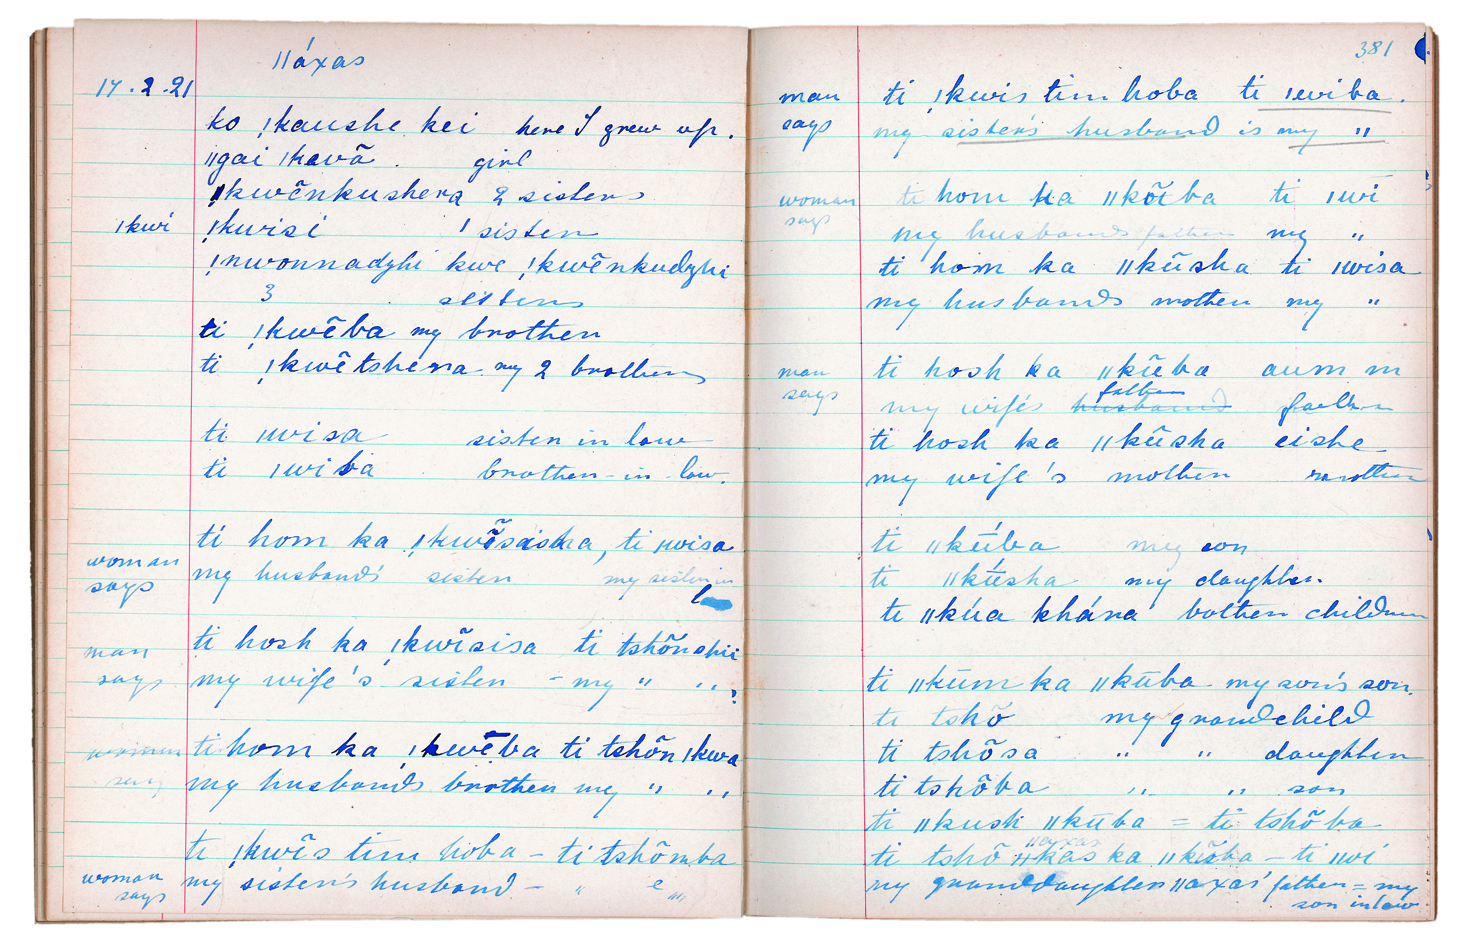 ||áxas
17.2.21
ko ǃkaushe kei here I grew up.
||gai |kavã. girl
ǃkwẽnkushera 2 sisters
|kwi ǃkwisi 1 sister
ǃnwonnadzhi kwe ǃkwẽnkudzhi
3 sisters
ti ǃkwẽba my brother
ti ǃkwẽtshera my 2 brothers
ti |wisa sister in law
ti |wiba brother-in-law.
ti hom ka ǃkwẽsisha, ti |wisa
woman says my husband's sister my sister in law
ti hosh ka ǃkwĩsisa ti tshõnshii
man says my wife's sister - my " "
ti hom ka ǃkwẽba ti tshõn|kwa
woman says my husband's brother my " "
ti ǃkwĩs tim hoba - ti tshõmba
woman says my sister's husband - "
381
man says ti ǃkwis tim hoba ti |wiba.
my sister's husband is my "
woman says ti hom ka ||kõba ti |wi
my husbands father my "
ti hom ka ||kũsha ti |wisa
my husbands mother my "
man says ti hosh ka ||kũba aum m
my wife's husband father father
ti hosh ka ||kũsha eishe
my wife's mother mother
ti ||kúba my son
ti ||kúsha my daughter.
ti ||kúa khára bother children
ti ||kūm ka ||kūba my son's son.
ti tshõ my grandchild
ti tshõsa " " daughter
ti tshõba " " son
ti ||kush ||kuba = ti tshõba
ti tshõ ||áxas ka ||kũba - ti |wi
my granddaughter ||axas' father = my son in law